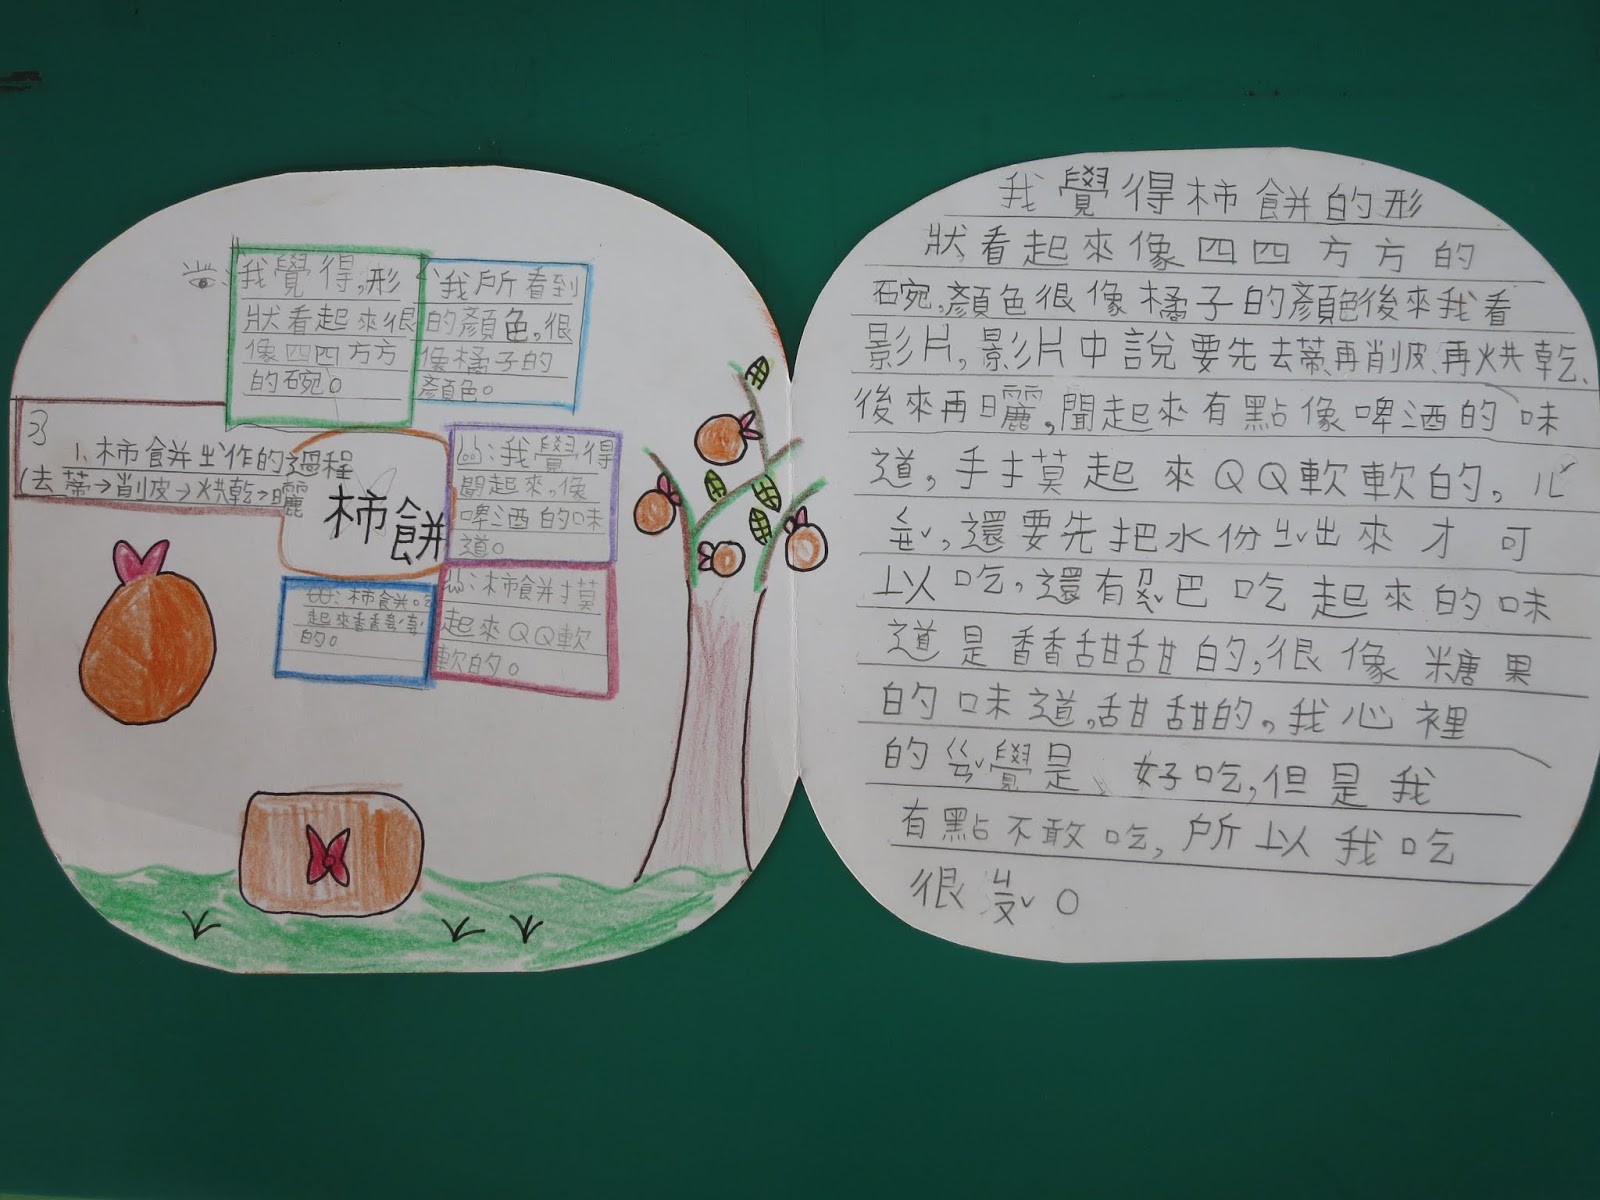 我覺得,形
狀看起來很
像四四方方
的碗。
我所看到
的顏色,很
像橘子的
顏色。
1.柿餅作的過程
(去蒂→削皮→烘乾→曬
柿餅
:我覺得
聞起來,像
啤酒的味
道。
:柿餅吃
起來香香甜甜
的。
:柿餅摸
起來QQ軟
軟的。
我覺得柿餅的形
狀看起來像四四方方的
碗,顏色很像橘子的顏色後來我看
影片,影片中說要先去蒂、再削皮、再烘乾、
後來再曬,聞起來有點像啤酒的味
道,手摸起來QQ軟軟的,
,還要先把水份出來才可
以吃,還有巴吃起來的味
道是香香甜甜的,很像糖果
的味道,甜甜的,我心裡
的ㄍㄢˇ覺是、好吃,但是我
有點不敢吃,所以我吃
很。